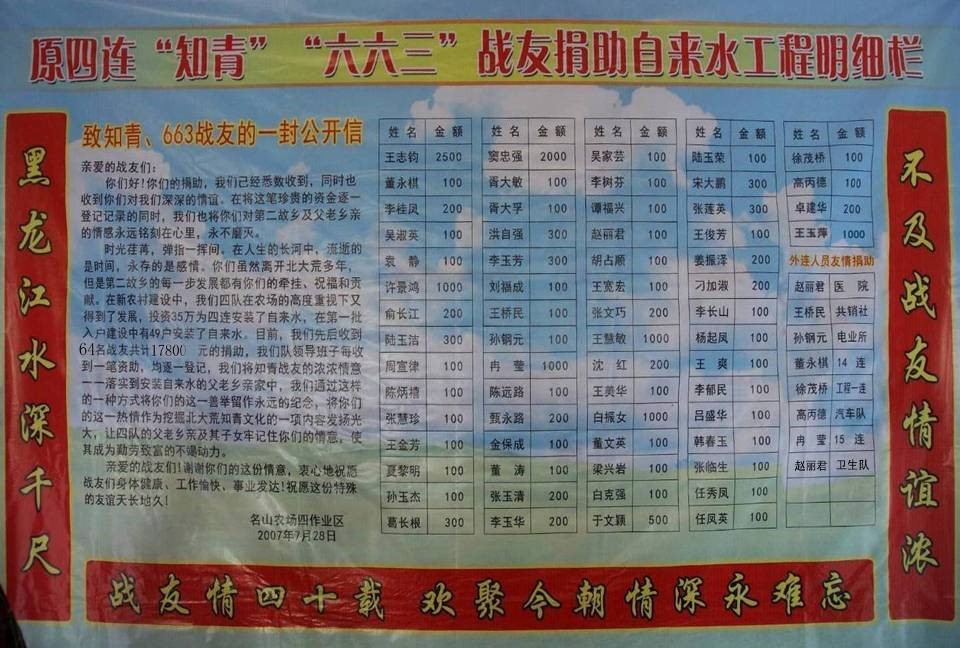 原四连“知青”“六六三”战友捐助自来水工程明细栏
黑龙江水深千尺
致知青、663战友的一封公开信
亲爱的战友们：
你们好！你们的捐助，我们已经悉数收到，同时也
收到你们对我们深深的情谊。在将这笔珍贵的资金逐一
登记记录的同时，我们也将你们对第二故乡及父老乡亲
的情感永远铭刻在心里，永不磨灭。
时光荏苒，弹指一挥间。在人生的长河中，流逝的
是时间，永存的是感情。你们虽然离开北大荒多年，
但是第二故乡的每一步发展都有你们的牵挂、祝福和贡
献。在新农村建设中，我们四队在农场的高度重视下又
得到了发展，投资35万为四连安装了自来水，在第一批
入户建设中有49户安装了自来水。目前，我们先后收到
64名战友共计17800 元的捐助，我们队领导班子每收
到一笔资助，均逐一登记，我们将知青战友的浓浓情意
一一落实到安装自来水的父老乡亲家中，我们通过这样
的一种方式将你们的这一善举留作永远的纪念，将你们
的这一热情作为挖掘北大荒知青文化的一项内容发扬光
大，让四队的父老乡亲及其子女牢记住你们的情意，使
其成为勤劳致富的不竭动力。
亲爱的战友们！谢谢你们的这份情意，衷心地祝愿
战友们身体健康、工作愉快、事业发达！祝愿这份特殊
的友谊天长地久！
名山农场四作业区
2007年7月28日
姓名 金额
王志钧 2500
董永棋 100
李桂凤 200
吴淑英 100
袁静 100
许景鸿 1000
俞长江 200
陆玉洁 300
周宣律 100
陈炳禧 100
张慧珍 100
王金芳 100
夏黎明 100
孙玉杰 100
葛长根 300
姓名 金额
窦忠强 2000
胥大敏 100
胥大孚 100
洪自强 300
李玉芳 300
刘福成 100
王桥民 100
孙钢元 100
冉莹 1000
陈远路 100
甄永路 200
金保成 100
董涛 100
张玉清 200
李玉华 200
姓名 金额
吴家芸 100
李树芬 100
谭福兴 100
赵丽君 100
胡占顺 100
王宽宏 100
张文巧 200
王慧敏 1000
沈红 200
王美华 100
白振女 1000
董文英 100
梁兴岩 100
白克强 100
于文颖 500
姓名 金额
陆玉荣 100
宋大鹏 300
张莲英 300
王俊芳 100
姜振泽 200
刁加淑 200
李长山 100
杨起凤 100
王爽 100
李郁民 100
吕盛华 100
韩春玉 100
张临生 100
任秀凤 100
任凤英 100
姓名 金额
徐茂桥 100
高丙德 100
卓建华 200
王玉萍 1000
外连人员友情捐助
赵丽君 医院
王桥民 共销社
孙钢元 电业所
董永棋 14连
徐茂桥 工程一连
高丙德 汽车队
冉莹 15连
赵丽君 卫生队
不及战友情谊浓
战友情四十载 欢聚今朝情深永难忘